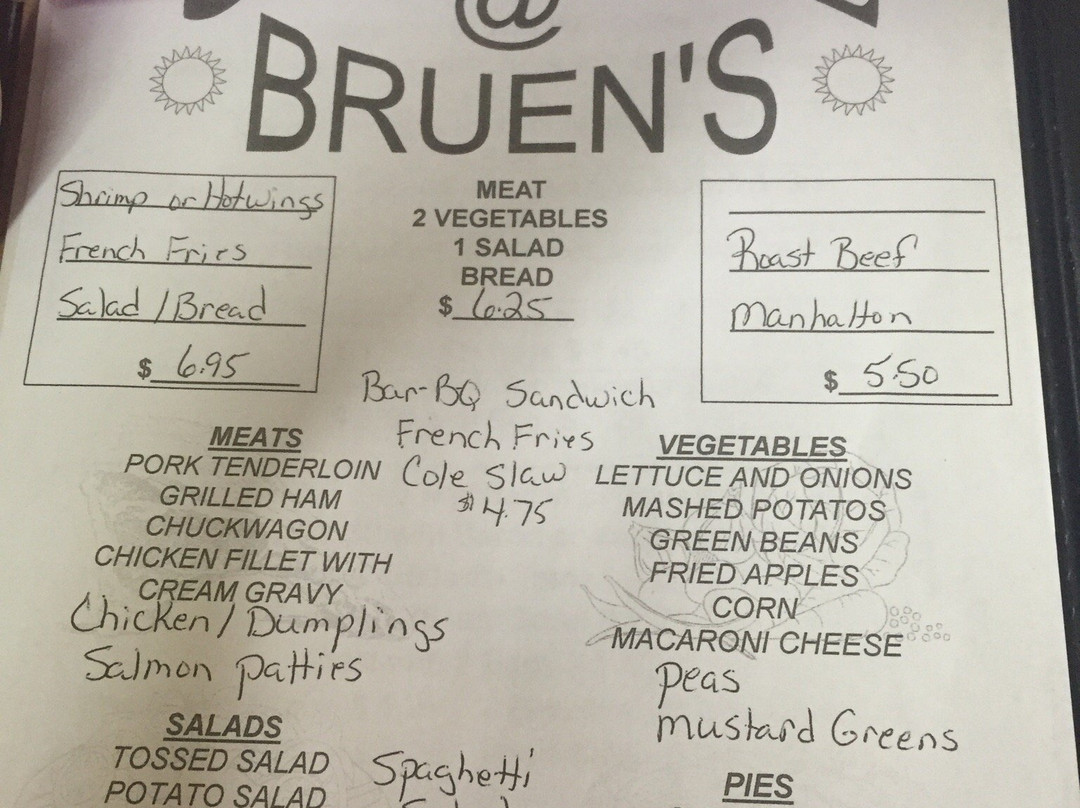 @
BRUEN'S
Shrimp or Hotwings
French Fries
Salad / Bread
$ 6.95
MEAT
2 VEGETABLES
1 SALAD
BREAD
$ 6.25
Roast Beef
Manhatton
$ 5.50
Bar-BQ Sandwich
French Fries
Cole Slaw
$4.75
MEATS
PORK TENDERLOIN
GRILLED HAM
CHUCKWAGON
CHICKEN FILLET WITH
CREAM GRAVY
Chicken / Dumplings
Salmon patties
VEGETABLES
LETTUCE AND ONIONS
MASHED POTATOS
GREEN BEANS
FRIED APPLES
CORN
MACARONI CHEESE
Peas
mustard Greens
SALADS
TOSSED SALAD
POTATO SALAD
Spaghetti
PIES